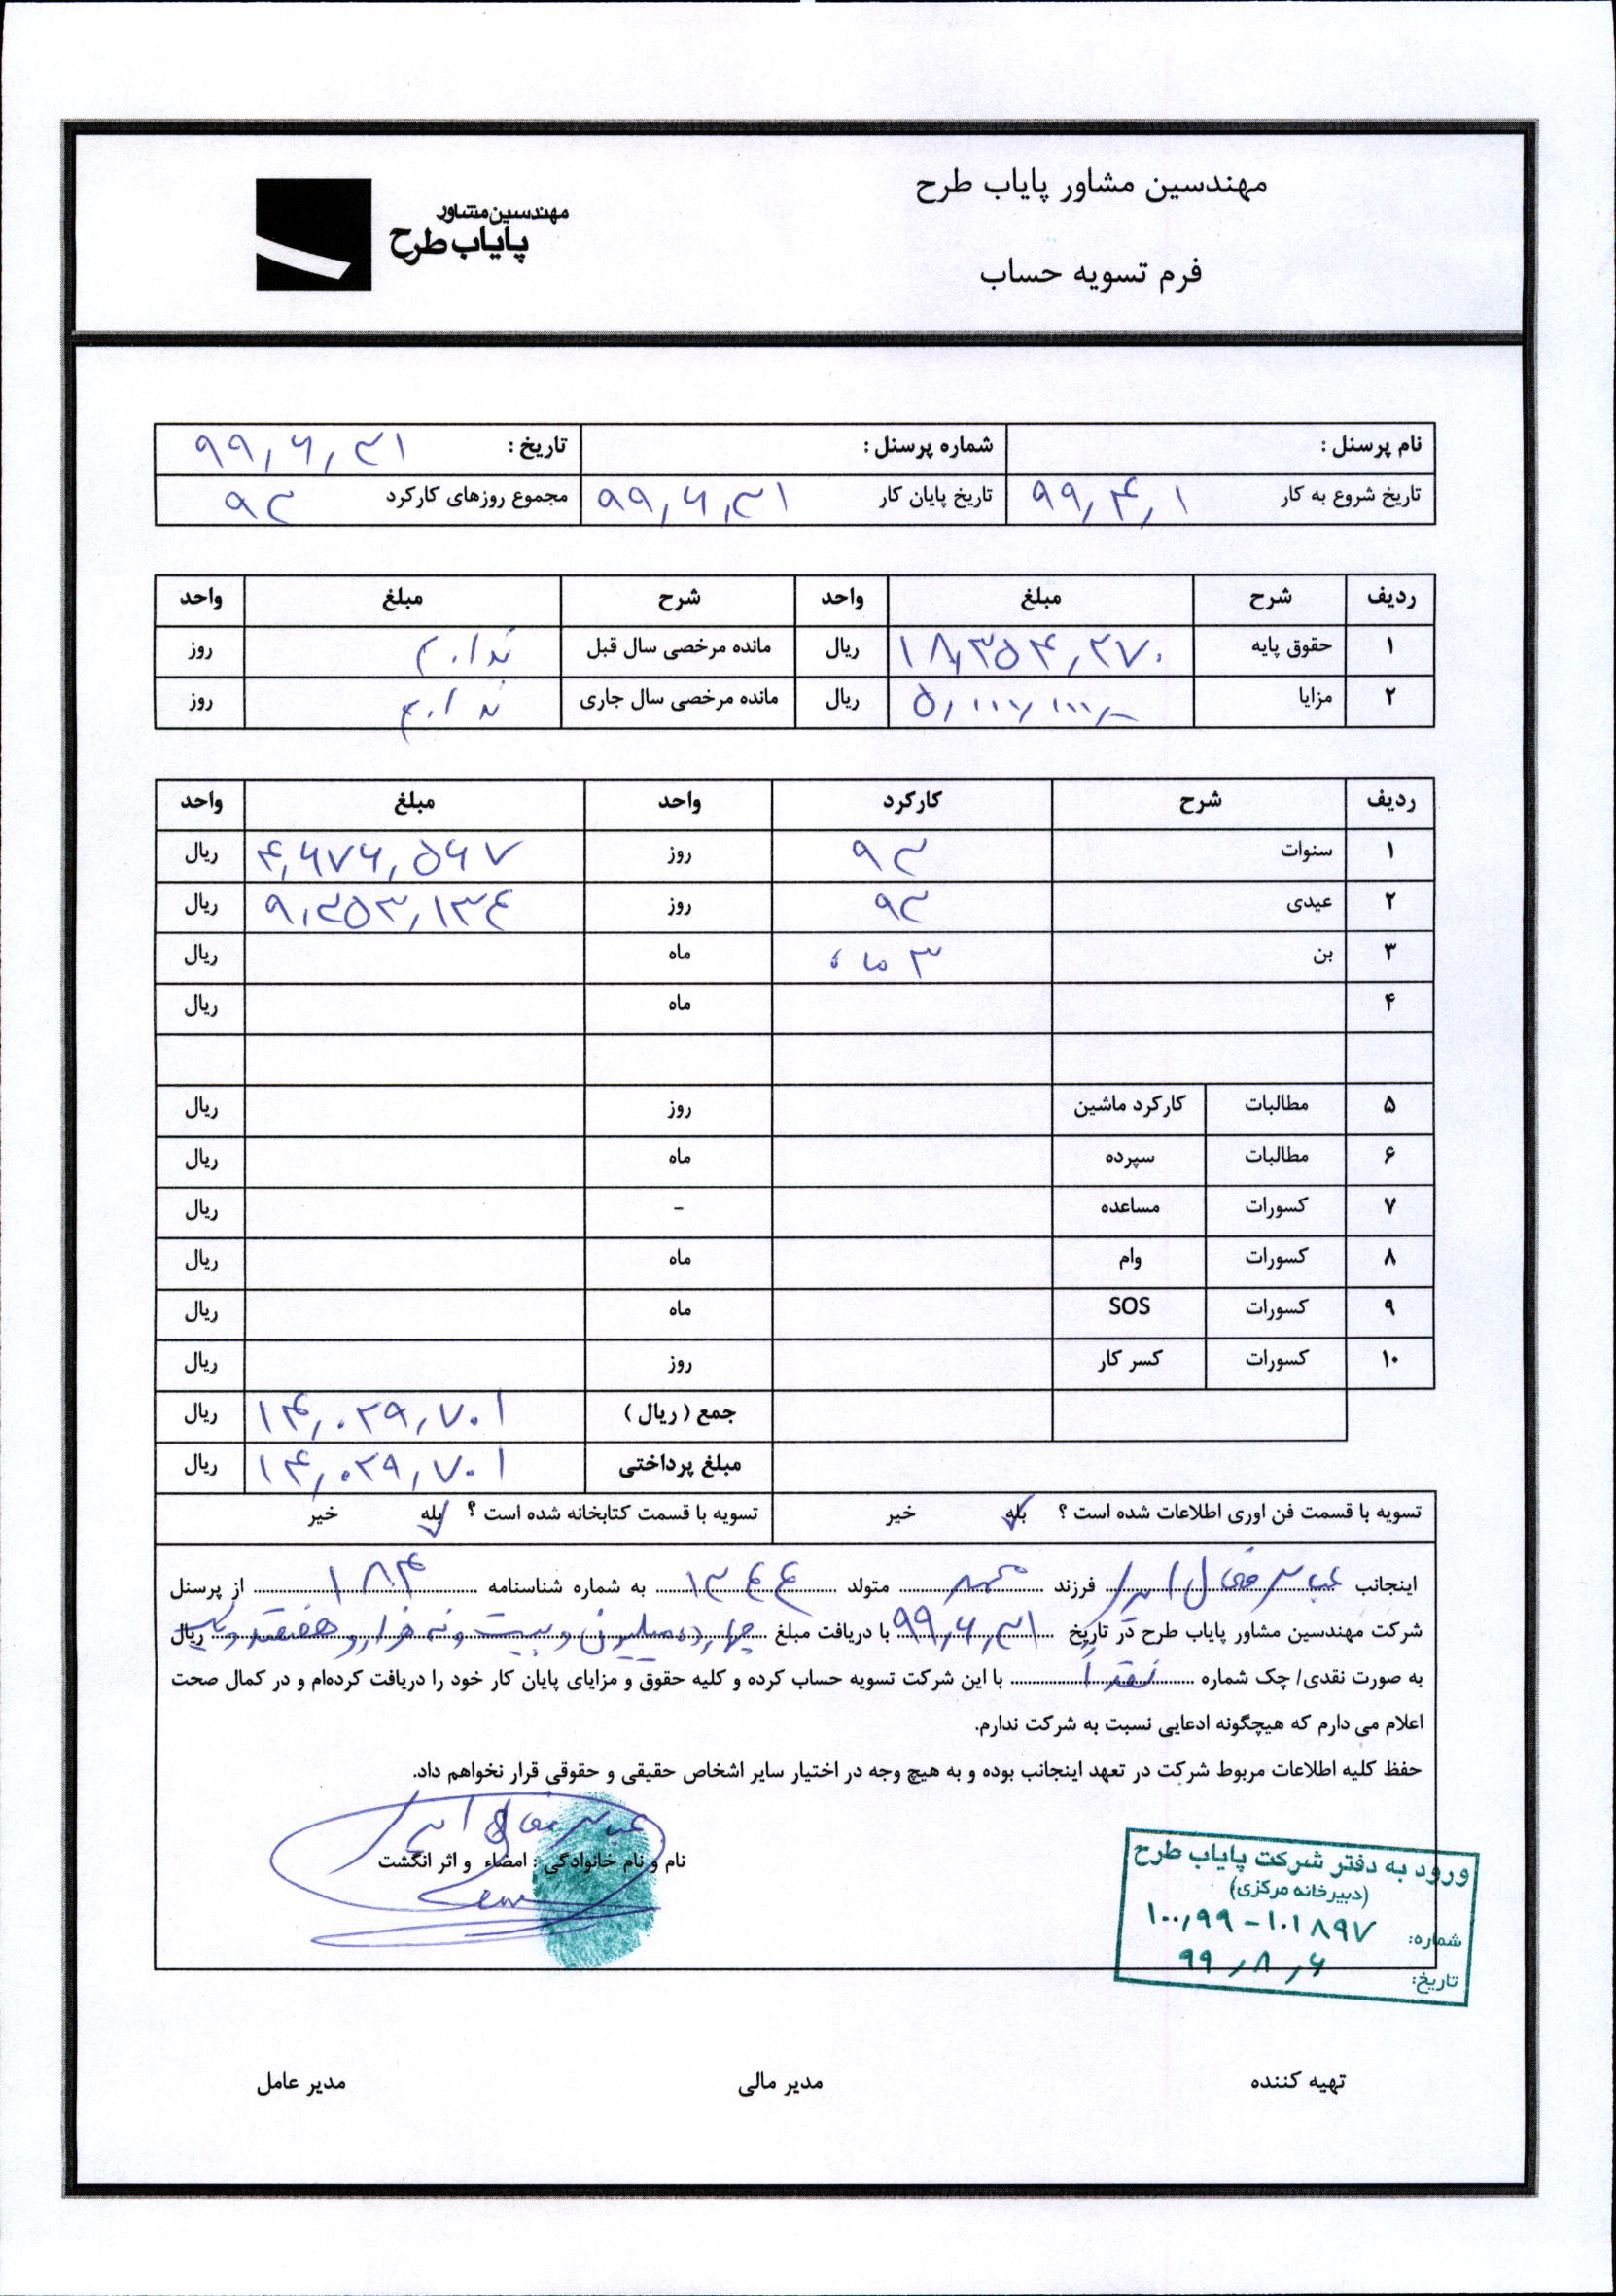 مهندسین مشاور پایاب طرح
مهندسین مشاور
پایاب طرح
فرم تسویه حساب
نام پرسنل : شماره پرسنل : تاریخ : ۹۹,۶,۳۱
تاریخ شروع به کار ۹۹,۴,۱ تاریخ پایان کار ۹۹,۶,۳۱ مجموع روزهای کارکرد ۹۳
ردیف شرح مبلغ واحد شرح مبلغ واحد
۱ حقوق پایه ۱۸,۳۵۴,۲۷۰ ریال مانده مرخصی سال قبل ندارم روز
۲ مزایا ریال مانده مرخصی سال جاری ندارم روز
ردیف شرح کارکرد واحد مبلغ واحد
۱ سنوات ۹۳ روز ۴,۶۷۶,۵۶۷ ریال
۲ عیدی ۹۳ روز ۹,۳۵۳,۱۳۴ ریال
۳ بن ۳ ماه ماه ریال
۴ ماه ریال
۵ مطالبات کارکرد ماشین روز ریال
۶ مطالبات سپرده ماه ریال
۷ کسورات مساعده - ریال
۸ کسورات وام ماه ریال
۹ کسورات SOS ماه ریال
۱۰ کسورات کسر کار روز ریال
جمع ( ریال ) ۱۴,۰۲۹,۷۰۱ ریال
مبلغ پرداختی ۱۴,۰۲۹,۷۰۱ ریال
تسویه با قسمت فن اوری اطلاعات شده است ؟ بله خیر تسویه با قسمت کتابخانه شده است ؟ بله خیر
اینجانب عباس فرزند محمد متولد ۱۳۴۴ به شماره شناسنامه ۱۸۴ از پرسنل
شرکت مهندسین مشاور پایاب طرح در تاریخ ۹۹,۶,۳۱ با دریافت مبلغ چهارده میلیون و بیست و نه هزار و هفتصد و یک ریال
به صورت نقدی/ چک شماره نقداً با این شرکت تسویه حساب کرده و کلیه حقوق و مزایای پایان کار خود را دریافت کرده‌ام و در کمال صحت
اعلام می دارم که هیچگونه ادعایی نسبت به شرکت ندارم.
حفظ کلیه اطلاعات مربوط شرکت در تعهد اینجانب بوده و به هیچ وجه در اختیار سایر اشخاص حقیقی و حقوقی قرار نخواهم داد.
عباس
نام و نام خانوادگی : امضاء و اثر انگشت
ورود به دفتر شرکت پایاب طرح
(دبیرخانه مرکزی)
شماره: ۱۰۰,۹۹-۱۰۱۸۹۷
تاریخ: ۹۹,۸,۶
تهیه کننده مدیر مالی مدیر عامل